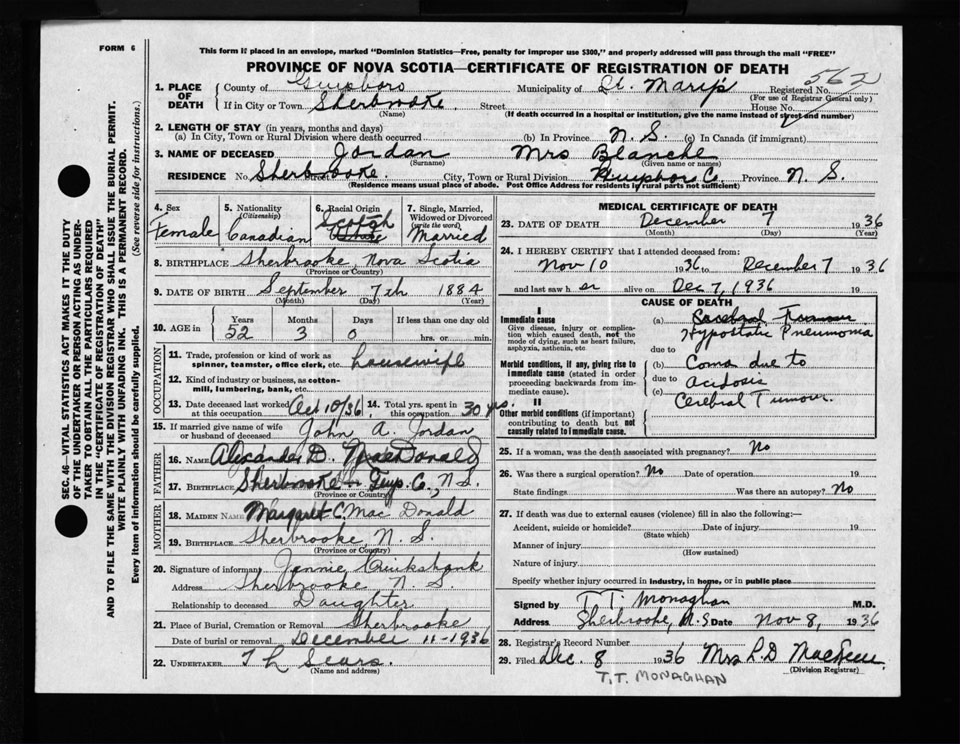 FORM 6
This form if placed in an envelope, marked "Dominion Statistics—Free, penalty for improper use $300," and properly addressed will pass through the mail "FREE"
PROVINCE OF NOVA SCOTIA—CERTIFICATE OF REGISTRATION OF DEATH
562
SEC. 46—VITAL STATISTICS ACT MAKES IT THE DUTY
OF THE UNDERTAKER OR PERSON ACTING AS UNDER-
TAKER TO OBTAIN ALL THE PARTICULARS REQUIRED
IN THE "CERTIFICATE OF REGISTRATION OF DEATH"
AND TO FILE THE SAME WITH THE DIVISION REGISTRAR WHO SHALL ISSUE THE BURIAL PERMIT.
WRITE PLAINLY WITH UNFADING INK. THIS IS A PERMANENT RECORD.
Every item of information should be carefully supplied. (See reverse side for instructions.)
1. PLACE OF DEATH County of Guysboro Municipality of St. Mary's Registered No.
(For use of Registrar General only)
If in City or Town Sherbrooke Street House No.
(Name) (If death occurred in a hospital or institution, give the name instead of street and number)
2. LENGTH OF STAY (in years, months and days)
(a) In City, Town or Rural Division where death occurred (b) In Province N. S. (c) In Canada (if immigrant)
3. NAME OF DECEASED Jordan Mrs Blanche
(Surname) (Given name or names)
RESIDENCE No. Sherbrooke Street City, Town or Rural Division Co. Province N. S.
(Residence means usual place of abode. Post Office Address for residents in rural parts not sufficient)
4. Sex Female
5. Nationality (Citizenship) Canadian
6. Racial Origin Scotch
7. Single, Married, Widowed or Divorced (write the word) Married
8. BIRTHPLACE Sherbrooke, Nova Scotia
(Province or Country)
9. DATE OF BIRTH September 7th 1884
(Month) (Day) (Year)
10. AGE in Years Months Days If less than one day old
52 3 0 hrs. or min.
OCCUPATION
11. Trade, profession or kind of work as spinner, teamster, office clerk, etc. housewife
12. Kind of industry or business, as cotton-mill, lumbering, bank, etc.
13. Date deceased last worked at this occupation Oct 10/36 14. Total yrs. spent in this occupation 30 yrs.
15. If married give name of wife or husband of deceased John A. Jordan
FATHER
16. NAME Alexander D. MacDonald
17. BIRTHPLACE Sherbrooke Guys. Co., N.S.
(Province or Country)
MOTHER
18. MAIDEN NAME Margaret C. MacDonald
19. BIRTHPLACE Sherbrooke N. S.
(Province or Country)
20. Signature of informant Jennie Cruikshank
Address Sherbrooke N. S
Relationship to deceased Daughter
21. Place of Burial, Cremation or Removal Sherbrooke
Date of burial or removal December 11-1936
22. UNDERTAKER T L Sears.
(Name and address)
MEDICAL CERTIFICATE OF DEATH
23. DATE OF DEATH December 7 1936
(Month) (Day) (Year)
24. I HEREBY CERTIFY that I attended deceased from:
Nov 10 1936 to December 7 1936
and last saw her alive on Dec 7, 1936
CAUSE OF DEATH
I
Immediate cause
Give disease, injury or complication which caused death, not the mode of dying, such as heart failure, asphyxia, asthenia, etc
(a) Cerebral Tumour
Hypostatic Pneumonia
due to
Morbid conditions, if any, giving rise to immediate cause (stated in order proceeding backwards from immediate cause).
(b) Coma due to
due to Acidosis
(c) Cerebral Tumour.
II
Other morbid conditions (if important) contributing to death but not causally related to immediate cause.
25. If a woman, was the death associated with pregnancy? No
26. Was there a surgical operation? No Date of operation 19
State findings Was there an autopsy? No
27. If death was due to external causes (violence) fill in also the following:—
Accident, suicide or homicide? Date of injury 19
(State which)
Manner of injury
(How sustained)
Nature of injury
Specify whether injury occurred in industry, in home, or in public place
Signed by T T. Monaghan M.D.
Address Sherbrooke, N.S Date Nov 8, 1936
28. Registrar's Record Number
29. Filed Dec. 8 1936 Mrs
(Division Registrar)
T.T. MONAGHAN